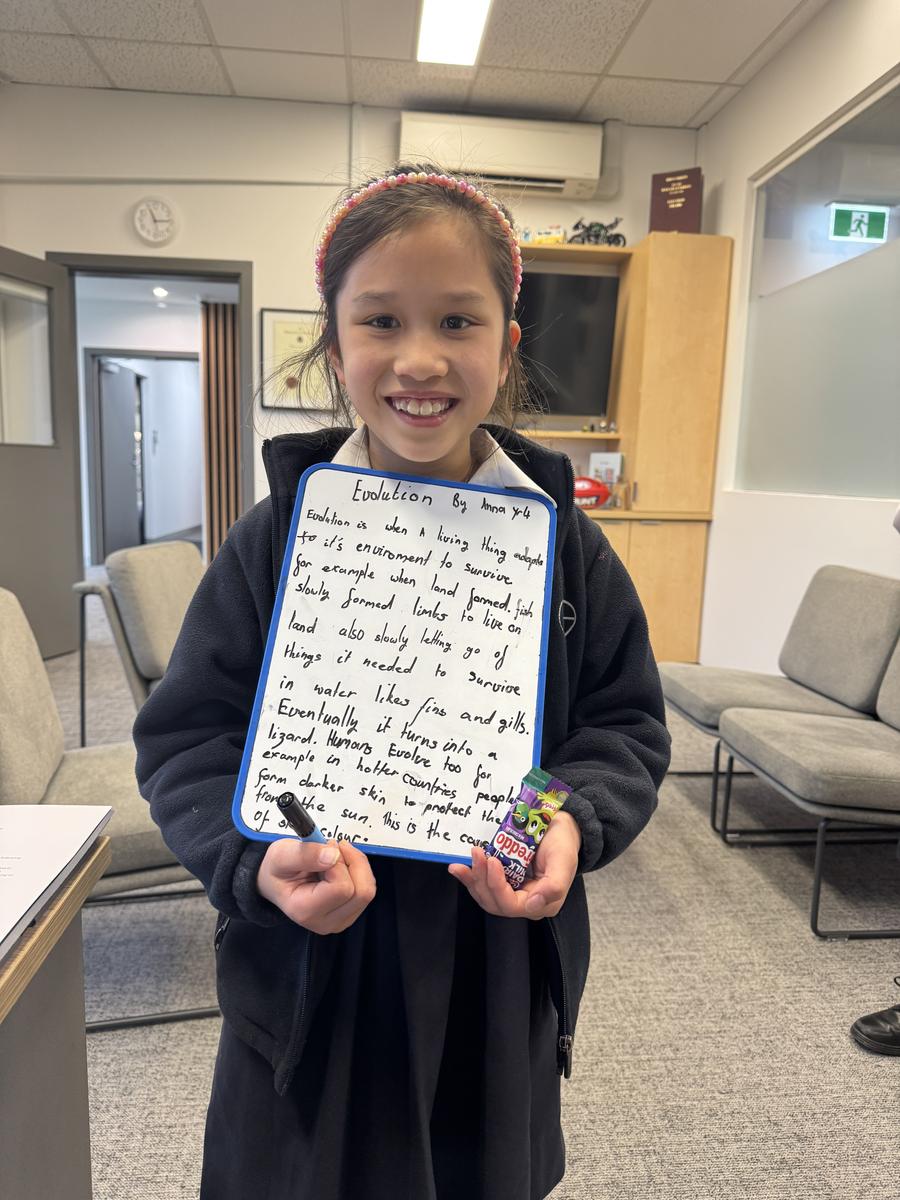 Evolution By Anna Yr 4
Evolution is when A living thing adapts
to it's enviroment to survive
for example when land formed. fish
slowly formed limbs to live on
land also slowly letting go of
things it needed to survive
in water likes fins and gills.
Eventually it turns into a
lizard. Humans Evolve too for
example in hotter countries people
form darker skin to protect the
from the sun. This is the
of colour.
Freddo
DAIRY MILK